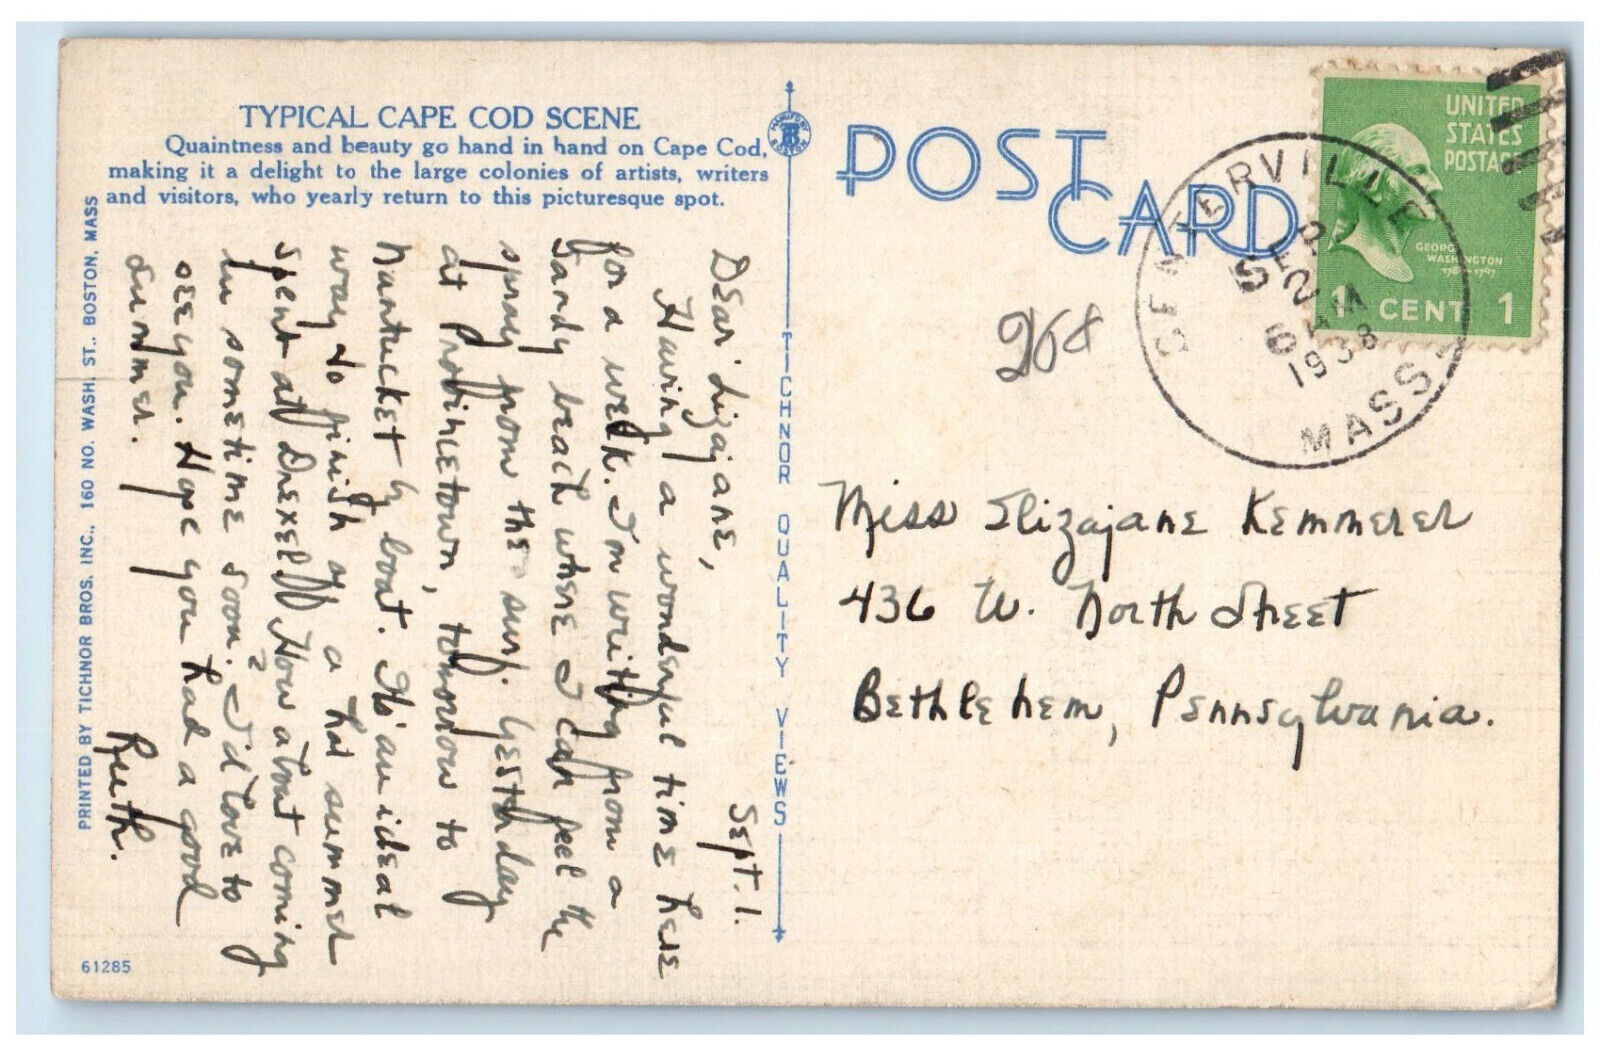 TYPICAL CAPE COD SCENE
Quaintness and beauty go hand in hand on Cape Cod,
making it a delight to the large colonies of artists, writers
and visitors, who yearly return to this picturesque spot.
Sept. 1.
Dear Lizajane,
Having a wonderful time here
for a week. I'm writing from a
sandy beach where I can feel the
spray from the surf. Yesterday
at Provincetown, tomorrow to
Nantucket by boat. It's an ideal
way to finish off a hot summer
spent at Drexel. How about coming
in sometime soon? I'd love to
see you. Hope you had a good
summer.
Ruth.
PRINTED BY TICHNOR BROS. INC., 160 NO. WASH. ST., BOSTON, MASS
61285
TICHNOR QUALITY VIEWS
POST
CARD
268
CENTERVILLE
SEP 2
6 AM
1938
MASS.
UNITED
STATES
POSTAGE
GEORGE
WASHINGTON
1 CENT 1
Miss Elizajane Kemmerer
436 W. North Street
Bethlehem, Pennsylvania.